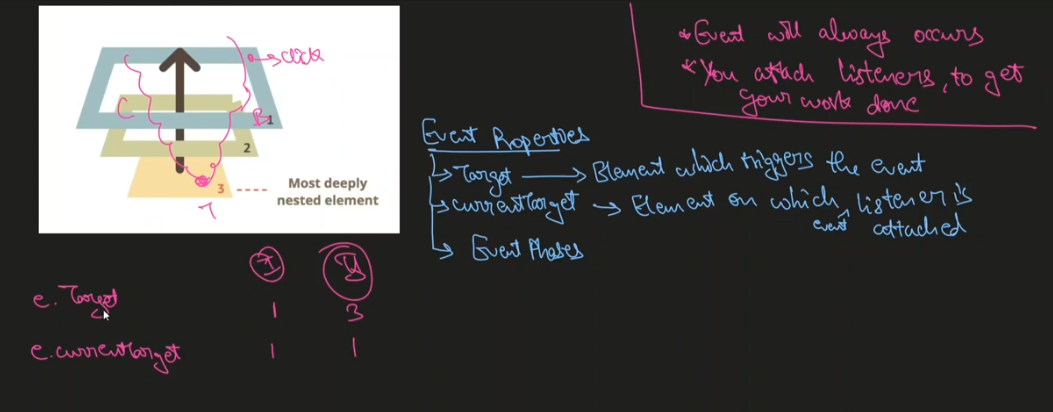 click
C
B
1
2
3
Most deeply
nested element
T
* Event will always occurs
* You attach listeners, to get
your work done
Event Properties
Target → Element which triggers the event
currentTarget → Element on which event listener is
attached
Event Phases
e. Target 1 3
e. currentTarget 1 1